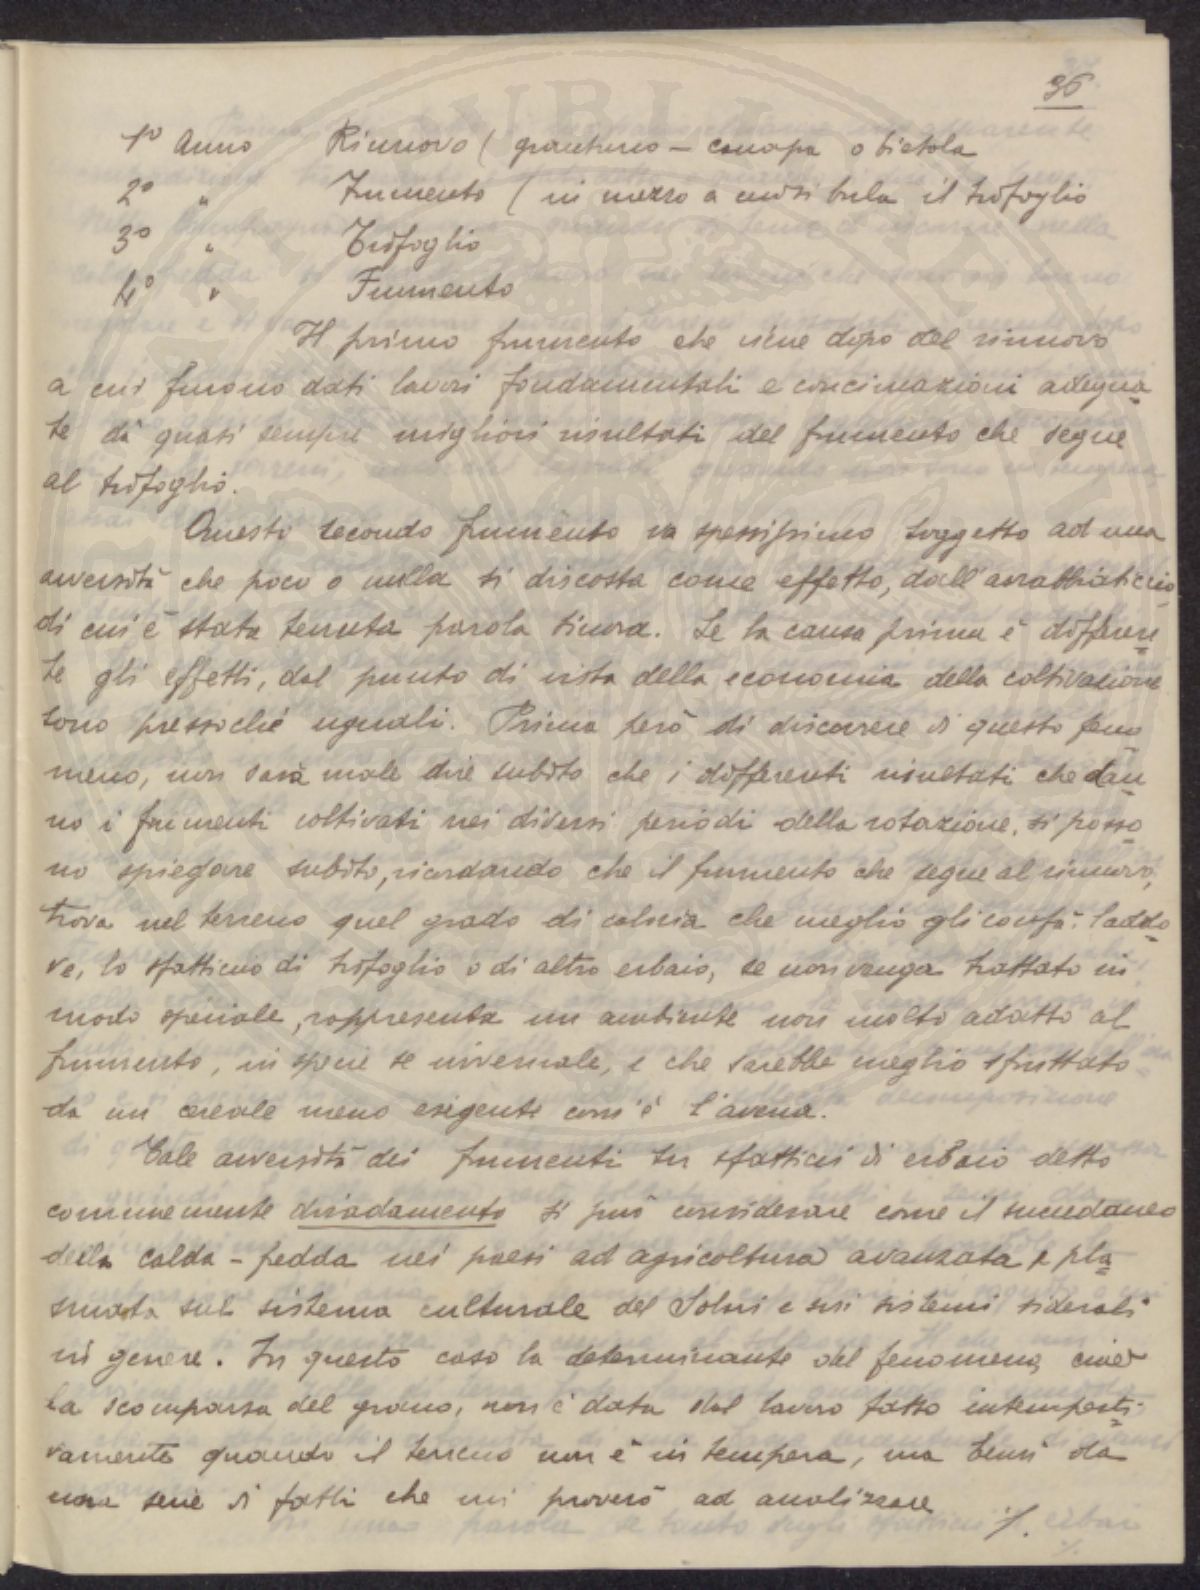 36
1º Anno Rinnovo ( granturco - canapa o bietola
2º " Frumento ( in mezzo a cui si bula il trifoglio
3º " Trifoglio
4º " Frumento
Il primo frumento che viene dopo del rinnovo
a cui furono dati lavori fondamentali e concimazioni adegua
te dà quasi sempre migliori risultati del frumento che segue
al trifoglio.
Questo secondo frumento va spessissimo soggetto ad una
avversità che poco o nulla si discosta come effetto, dall'arrabbiaticcio
di cui è stata tenuta parola sinora. Se la causa prima è differen
te gli effetti, dal punto di vista della economia della coltivazione
sono pressoché uguali. Prima però di discorrere di questo feno
meno, non sarà male dire subito che i differenti risultati che dan
no i frumenti coltivati nei diversi periodi della rotazione, si posso
no spiegare subito, ricordando che il frumento che segue al rinnovo,
trova nel terreno quel grado di caloria che meglio gli confà: laddo
ve, lo sfatticcio di trifoglio o di altro erbaio, se non venga trattato in
modo speciale, rappresenta un ambiente non molto adatto al
frumento, in specie se invernale, e che sarebbe meglio sfruttato
da un cereale meno esigente com'è l'avena.
Tale avversità dei frumenti su sfatticci di erbaio detto
comunemente diradamento si può considerare come il succedaneo
della calda - fedda nei paesi ad agricoltura avanzata e pla
smata sul sistema culturale del Solari e sui sistemi siderali
in genere. In questo caso la determinante del fenomeno, cioè
la scomparsa del grano, non è data dal lavoro fatto intempesti-
vamente quando il terreno non è in tempera, ma bensì da
una serie di fatti che mi proverò ad analizzare
./.